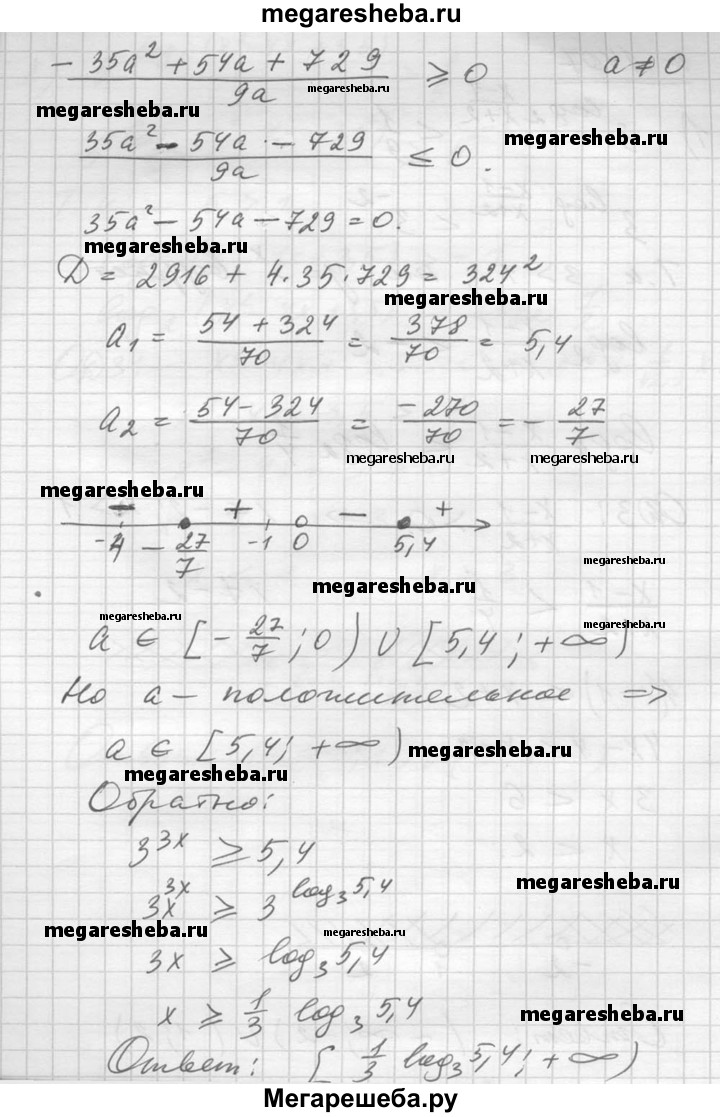 megaresheba.ru
-35a² + 54a + 729 / 9a ≥ 0   a ≠ 0
megaresheba.ru
megaresheba.ru
35a² - 54a - 729 / 9a ≤ 0.
megaresheba.ru
35a² - 54a - 729 = 0.
megaresheba.ru
D = 2916 + 4·35·729 = 324²
megaresheba.ru
a₁ = (54 + 324)/70 = 378/70 = 5,4
a₂ = (54 - 324)/70 = -270/70 = -27/7
megaresheba.ru megaresheba.ru
megaresheba.ru
- + - +
-4 -27/7 -1 0 5,4
megaresheba.ru
megaresheba.ru
megaresheba.ru megaresheba.ru
a ∈ [-27/7; 0) ∪ [5,4; +∞)
Но a - положительное =>
a ∈ [5,4; +∞) megaresheba.ru
megaresheba.ru
Обратно:
3^3x ≥ 5,4
3^3x ≥ 3^log₃5,4
megaresheba.ru
megaresheba.ru megaresheba.ru
3x ≥ log₃5,4
x ≥ 1/3 log₃5,4
megaresheba.ru
Ответ: [1/3 log₃5,4; +∞)
Мегарешеба.ру